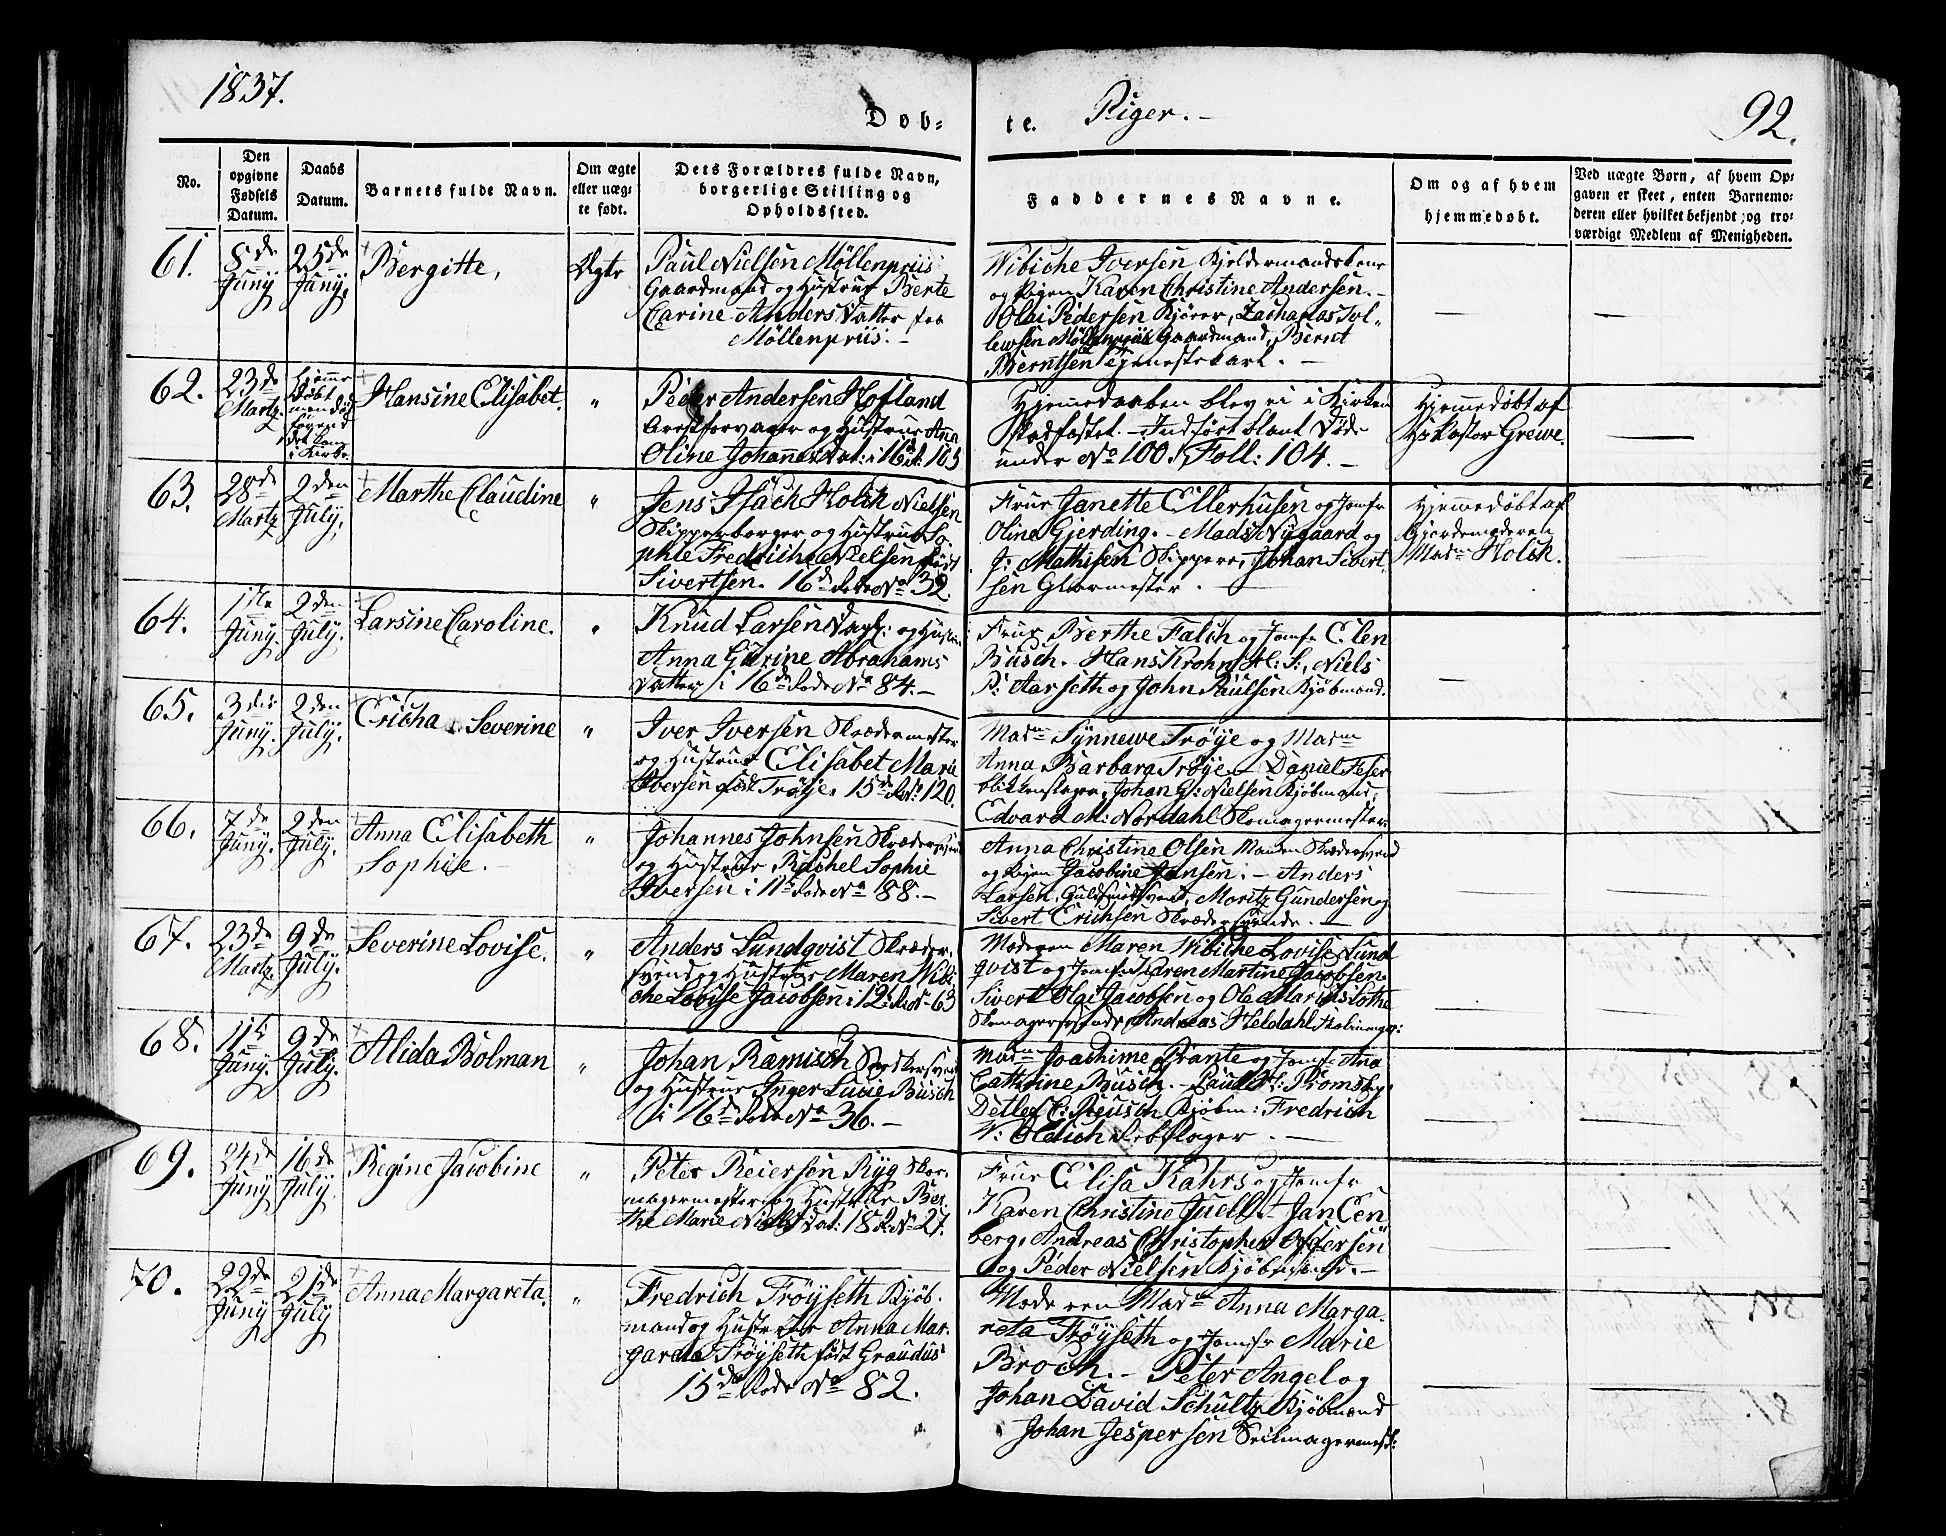 1837.
Døb- te. Piger. -
92.
No.
Den opgivne Fødsels Datum.
Daabs Datum.
Barnets fulde Navn.
Om ægte eller uægte født.
Dets Forældres fulde Navn, borgerlige Stilling og Opholdssted.
Faddernes Navne.
Om og af hvem hjemmedøbt.
Ved uægte Børn, af hvem Opgaven er skeet, enten Barnemoderen eller hvilket bekjendt og troværdigt Medlem af Menigheden.
61.
8de Juny
25de Juny.
Bergitte,
Ægte
Paul Nielsen Møllenpriis
Gaardmand og Hustrue Berte
Carine Anders Datter fra
Møllenpriis. -
Wibiche Iversen Kjeldermandskone
og Pigen Karen Christine Andersen. -
Olai Pedersen Kjører, Zacharias Tol-
lewsen Møllenpriis Gaardmand, Bernt
Berntsen Tjenestekarl. -
62.
23de Martz.
Hansine Elisabet.
"
Peder Andersen Hofland
Arrestforvarer og Hustrue Anna
Oline Johannes Dat: i 16 d: 103
Hjemmedaaben blev ei i Kirken
stadfæstet. - Indført blant Døde
under No 100. Foll: 104. -
Hjemmedøbt af
Hr Pastor Grewe.
63.
28de Martz
2den July,
Marthe Claudine
"
Jens Fach Holck Nielsen
Skipperborger og Hustrue So-
phie Fredriche Nielsen født
Sivertsen. 16de Rode No 32.
Frue Janette Ellerhusen og Jomfr
Oline Gjerding. - Mads Nygaard og
J: Mathisen Skippere, Johan Sivert-
sen Glarmester.
Hjemmedøbt af
Gjordemoderen
Madm Holck.
64.
1ste Juny.
2den July.
Larsine Caroline.
"
Knud Larsen Dagk: og Hustrue
Anna Gurine Abrahams
Datter i 16de Rode No 84. -
Frue Berthe Falch og Jomfr Elen
Busch. Hans Krohn H: S:, Niels
P: Aarseth og John Paulsen Kjøbmænd.
65.
3die Juny.
2den July.
Ericha Severine
"
Iver Iversen Skrædermester
og Hustrue Elisabet Marie
Iversen født Trøje. 15de Rod. 120.
Madm Synnewe Trøye og Madm
Anna Barbara Trøye. - Daniel Feser
blikkenslager, Johan G: Nielsen Kjøbmand,
Edvard M: Nordahl Skomagermester.
66.
7de Juny.
2den July.
Anna Elisabeth
Sophie. -
"
Johannes Johnsen Skrædersvend
og Hustrue Rachel Sophie
Iversen i 11te Rode No 88. -
Anna Christine Olsen Manden Skrædersvend
og Pigen Jacobine Jansen. - Anders
Larsen, Guldsmidsvend, Moritz Gundersen og
Sivert Erichsen Skrædersvende. -
67.
23de Martz.
9de July.
Severine Lovise.
"
Anders Lundqvist Skræder-
svend og Hustrue Maren Wibi-
che Lovise Jacobsen i 12te Rode 63
Moderen Maren Wibiche Lovise Lund
qvist og Jomfr: Karen Martine Jacobsen.
Sivert Olai Jacobsen og Ole Marius Lothe
Skomagersvende, Andreas Heldahl
68.
11te Juny.
9de July.
Alida Bolman
"
Johan Ræmisch
og Hustrue Inger Lucie Busch
i 16de Rode No 36. -
Madm Joachime Brante og Jomfr Ana
Cathrine Busch. - Paul H: Tromsby,
Detlef C: Reusch Kjøbm: Fredrich
W: Oldich Rebslager. -
69.
24de Juny
16de July.
Regine Jacobine
"
Peter Reiersen Ryg Sko-
magermester og Hustrue Ber-
the Marie Niels Dat: 18 R. No 27.
Frue Elisa Kahrs og Jomfr
Karen Christine Juell. - Jan Een
berg, Andreas Christopher Andersen
og Peder Nielsen Kjøbmænd. -
70.
22de Juny
21de July
Anna Margareta.
"
Fredrich Trøyseth Kjøb-
mand og Hustrue Anna Mar-
gareta Trøyseth født Graudus
15de Rode No 82.
Moderen Madm Anna Marga-
reta Trøyseth og Jomfr Marie
Broch. - Peter Angel og
Johan David Schultz Kjøbmænd
Johan Jespersen Seilmagermest: